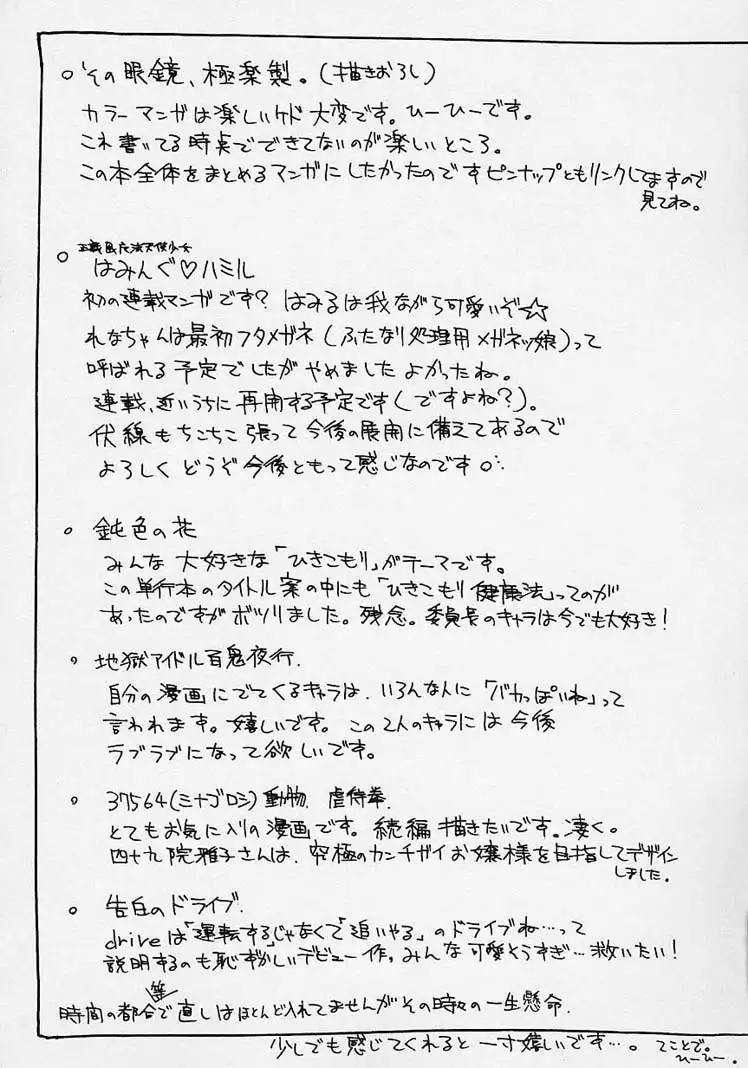 。その眼鏡、極楽製。(描きおろし)
カラーマンガは楽しいケド大変です。ひーひーです。
これ書いてる時点でできてないのが楽しいところ。
この本全体をまとめるマンガにしたかったのですピンナップともリンクしてますので
見てね。
。はみんぐ♡ハミル
初の連載マンガです? はみるは我ながら可愛いぞ☆☆
れなちゃんは最初フタメガネ(ふたなり処理用メガネッ娘)って
呼ばれる予定でしたがやめましたよかったね。
連載、近いうちに再開する予定です(ですよね?)。
伏線もちこちこ張って今後の展開に備えてあるので
よろしくどうぞ今後ともって感じなのです
。鈍色の花
みんな大好きな「ひきこもり」がテーマです。
この単行本のタイトル案の中にも「ひきこもり健康法」ってのが
あったのですがボツりました。残念。委員長のキャラは今でも大好き!
。地獄アイドル百鬼夜行.
自分の漫画にでてくるキャラは、いろんな人に「バカっぽいね」って
言われます。嬉しいです。この2人のキャラには今後
ラブラブになって欲しいです。
。37564(ミナゴロシ)動物 虐待拳.
とてもお気に入りの漫画です。続編描きたいです。凄く。
四十九院雅子さんは、究極のカンチガイお嬢様を目指してデザイン
しました。
。告白のドライブ.
driveは「運転する」じゃなくて「追いやる」のドライブね…って
説明するのも恥ずかしいデビュー作。みんな可愛そうすぎ…救いたい!
時間の都合等で直しはほとんど入れてませんがその時々の一生懸命.
少しでも感じてくれると一寸嬉しいです…。てことで。
ひーひー.